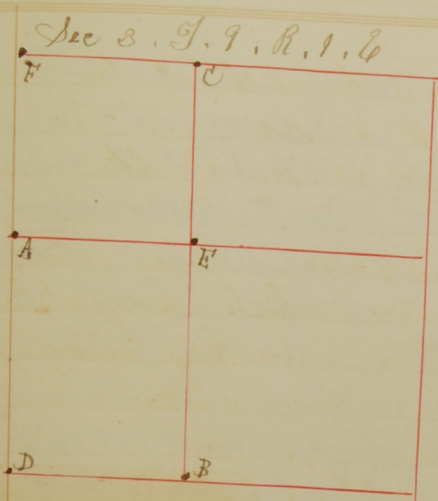 Sec 3. T. 9. R. 1. E
F C
A E
D B